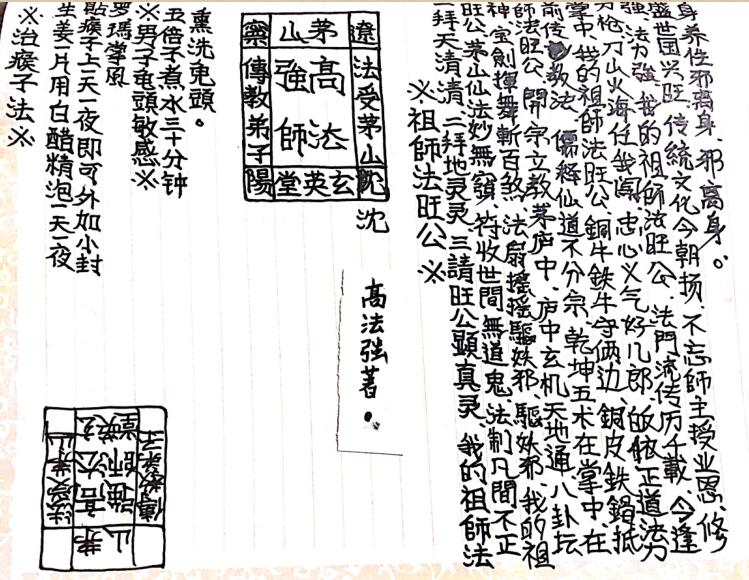 ※治瘊子法※
生姜一片用白醋精泡一天一夜
貼瘊子上一天一夜即可外如小封
罗瑪掌風
※男子龟頭敏感※
五倍子煮水三十分钟
熏洗龟頭。
茅山
遼法受茅山沈
高法
強師
傳教弟子陽
玄英堂
沈
高法強著。
茅山
高法
強師
法受茅山
傳教弟子
玄英堂
※祖師法旺公※
一拜天清清 二拜地灵灵 三請旺公顯真灵、我的祖師法
旺公、茅山仙法妙無窮、符收世間無道鬼、法制凡間不正
神、宝劍揮舞斬百煞、法扇搖搖驅妖邪、驅妖邪、我的祖
師法旺公、開宗立教茅庐中、庐中玄机天地通、八卦坛
前传教法、儒释仙道不分宗、乾坤五术在掌中、在
掌中、我的祖師法旺公、銅牛鉄牛守俩边、銅皮鉄鍋抵
刀枪、刀山火海任我闯、忠心义气好儿郎、皈依正道法力
強、法力強、我的祖師法旺公、法門流传历千載、今逢
盛世国兴旺、传統文化今朝扬、不忘師主授业恩、修
身养性邪离身、邪离身。